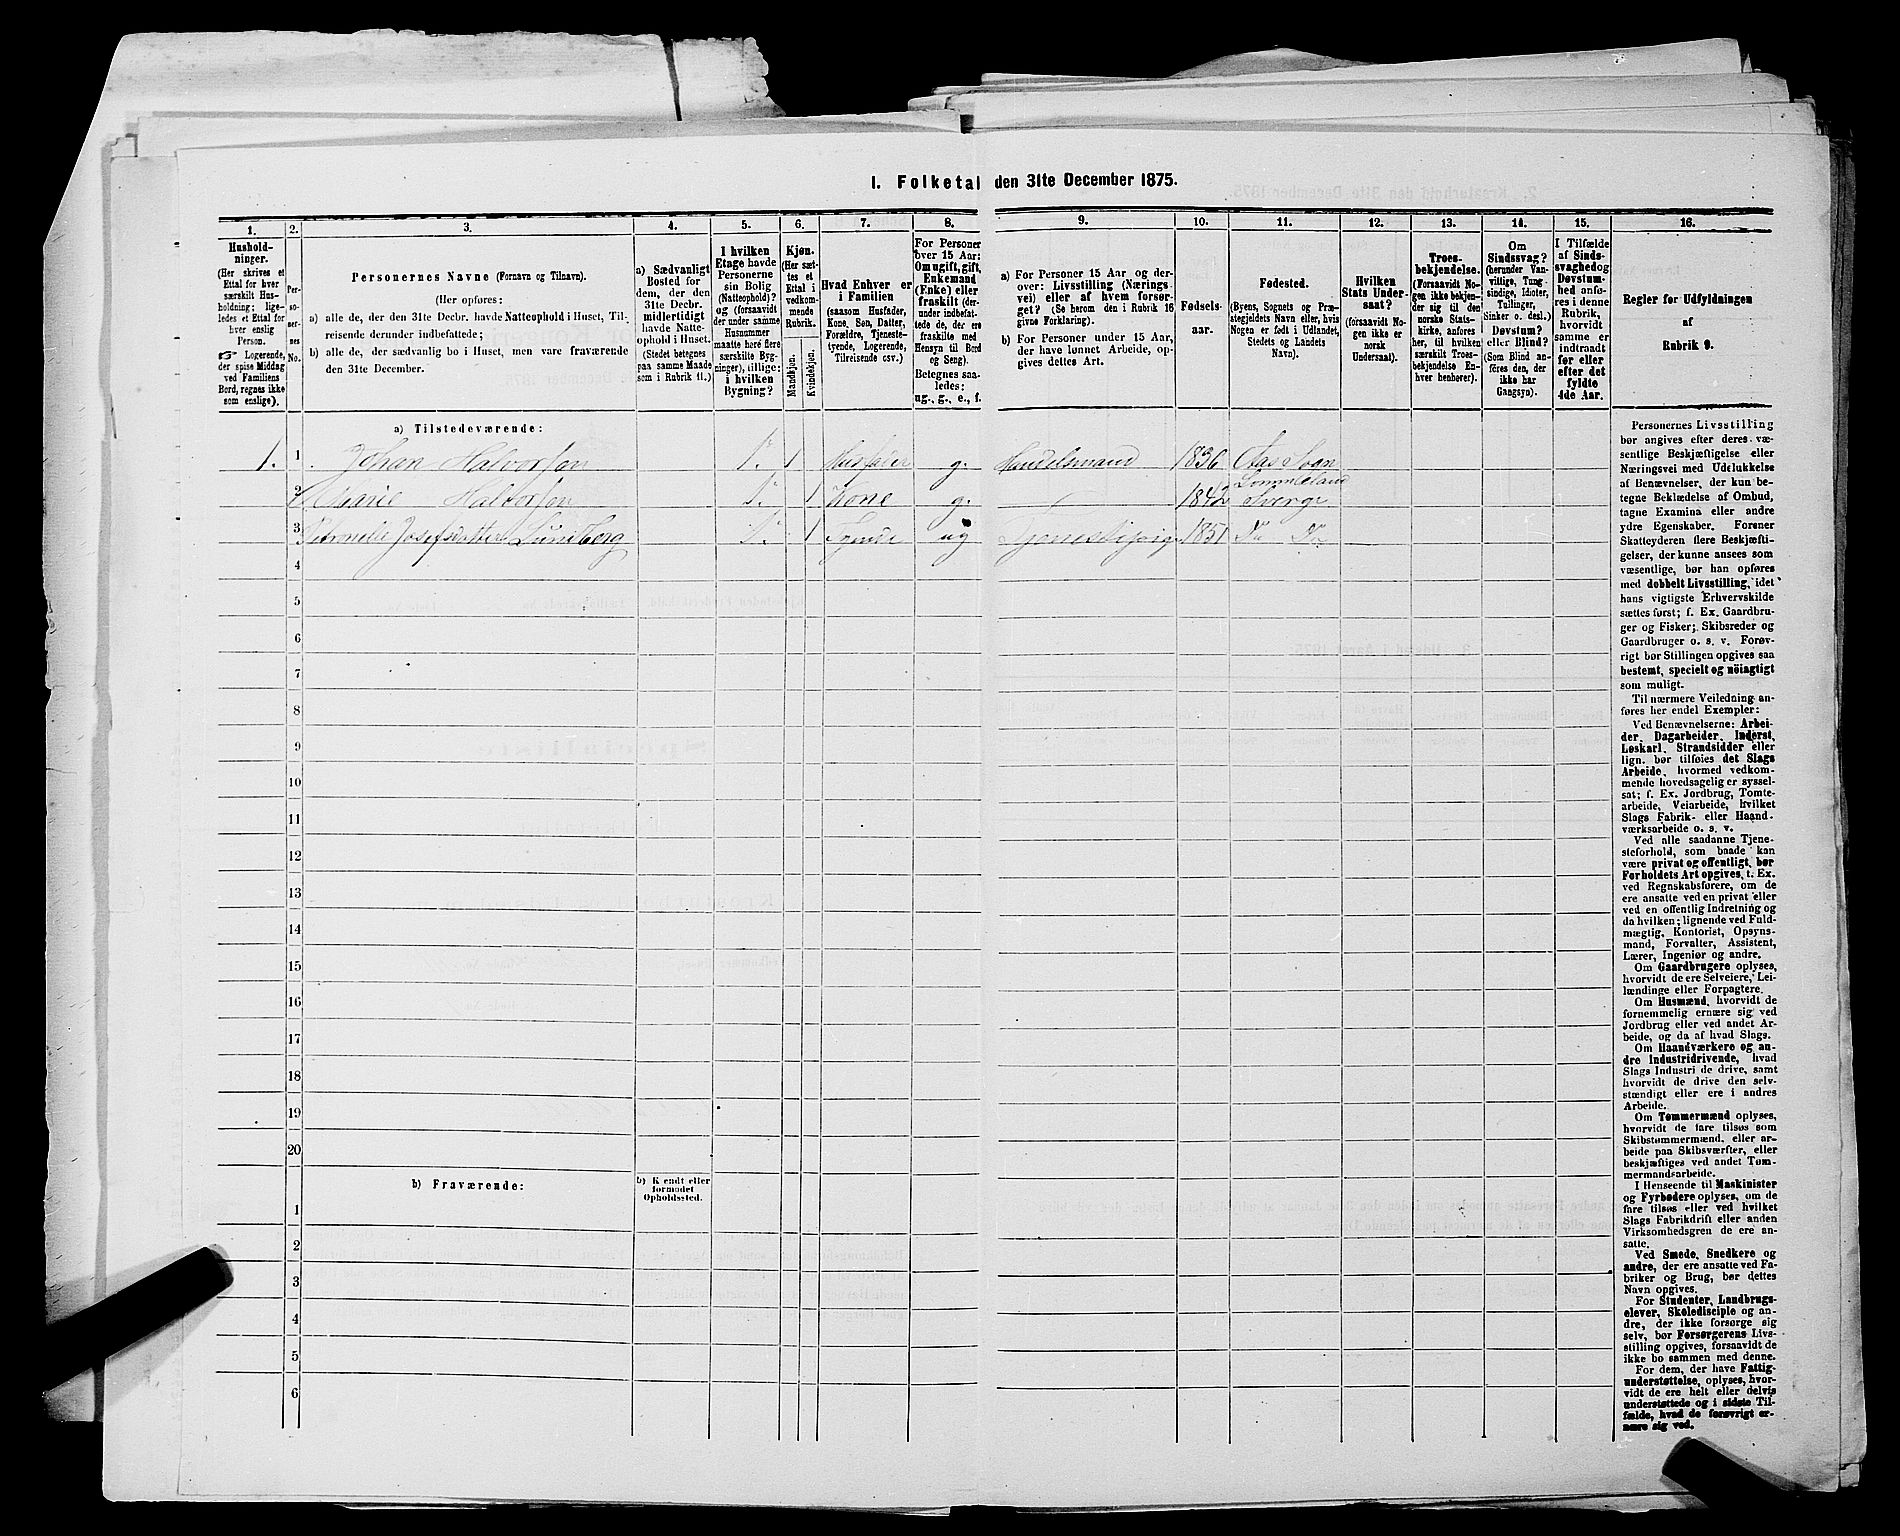 I. Folketal den 31te December 1875.
1. 2. 3. 4. 5. 6. 7. 8. 9. 10. 11. 12. 13. 14. 15. 16.
Hushold-
ninger.
(Her skrives et
Ettal for hver
særskilt Hus-
holdning; lige-
ledes et Ettal for
hver enslig
Person.
☞ Logerende,
der spise Middag
ved Familiens
Bord, regnes ikke
som enslige).
Per-
so-
ner-
nes
No.
Personernes Navne (Fornavn og Tilnavn).
(Her opføres:
a) alle de, der den 31te Decbr. havde Natteophold i Huset, Til-
reisende derunder indbefattede;
b) alle de, der sædvanlig bo i Huset, men vare fraværende
den 31te December.
a) Sædvanligt
Bosted for
dem, der den
31te Decbr.
midlertidigt
havde Natte-
ophold i Huset.
(Stedet betegnes
paa samme Maade
som i Rubrik 11.)
I hvilken
Etage havde
Personerne
sin Bolig
(Natteophold)?
og (forsaavidt
der under samme
Husnummer
maatte høre flere
særskilte Byg-
ninger), tillige:
i hvilken
Bygning?
Kjøn.
(Her sæt-
tes et
Ettal i
vedkom-
mende
Rubrik.
Mandkjøn.
Kvindekjøn.
Hvad Enhver er
i Familien
(saasom Husfader,
Kone, Søn, Datter,
Forældre, Tjeneste-
tyende, Logerende,
Tilreisende osv.)
For Personer
over 15 Aar:
Om ugift, gift,
Enkemand
(Enke) eller
fraskilt (der-
under indbefat-
tede de, der ere
fraskilte med
Hensyn til Bord
og Seng).
Betegnes saa-
ledes:
ug., g., e., f.
a) For Personer 15 Aar og der-
over: Livsstilling (Nærings-
vei) eller af hvem forsør-
get? (Se herom den i Rubrik 16
givne Forklaring).
b) For Personer under 15 Aar,
der have lønnet Arbeide, op-
gives dettes Art.
Fødsels-
aar.
Fødested.
(Byens, Sognets og Præ-
stegjeldets Navn eller, hvis
Nogen er født i Udlandet,
Stedets og Landets
Navn).
Hvilken
Stats Under-
saat?
(forsaavidt No-
gen ikke er
norsk
Undersaat).
Troes-
bekjendelse.
(Forsaavidt No-
gen ikke bekjen-
der sig til den
norske Stats-
kirke, anføres
her, til hvilken
særskilt Troes-
bekjendelse En-
hver henhører).
Om
Sindssvag?
(herunder Van-
vittige, Tung-
sindige, Idioter,
Tullinger,
Sinker o. desl.)
Døvstum?
eller Blind?
(Som Blind an-
føres den, der
ikke har
Gangsyn).
I Tilfælde
af Sinds-
svaghed og
Døvstum-
hed anfø-
res i denne
Rubrik,
hvorvidt
samme er
indtraadt
før eller
efter det
fyldte
4de Aar.
Regler for Udfyldningen
af
Rubrik 9.
a) Tilstedeværende:
1. 1 Johan Halvorsen 1. 1 Husfader g. Handelsmand 1836 Aas Sogn
2 Marie Halvorsen 1. 1 Kone g. 1842 Sverge
3 Petronelle Josefsdatter Lundberg 1. 1 Tjende ug 1851 Do Do
4
5
6
7
8
9
10
11
12
13
14
15
16
17
18
19
20
b) Fraværende:
b) Kendt eller
formodet
Opholdssted.
1
2
3
4
5
6
Personernes Livsstilling
bør angives efter deres væ-
sentlige Beskjæftigelse eller
Næringsvei med Udelukkelse
af Benævnelser, der kun be-
tegne Beklædelse af Ombud,
tagne Examina eller andre
ydre Egenskaber. Forener
Skatteyderen flere Beskjæfti-
gelser, der kunne ansees som
væsentlige, bør han opføres
med dobbelt Livsstilling, idet
hans vigtigste Erhvervskilde
sættes først; f. Ex. Gaardbru-
ger og Fisker; Skibsreder og
Gaardbruger o. s. v. Forøv-
rigt bør Stillingen opgives saa
bestemt, specielt og nöiagtigt
som muligt.
Til nærmere Veiledning an-
føres her endel Exempler:
Ved Benævnelserne: Arbei-
der, Dagarbeider, Inderst,
Løskarl, Strandsidder eller
lign. bør tilføies det Slags
Arbeide, hvormed vedkom-
mende hovedsagelig er syssel-
sat; f. Ex. Jordbrug, Tomte-
arbeide, Veiarbeide, hvilket
Slags Fabrik- eller Haand-
værksarbeide o. s. v.
Ved alle saadanne Tjene-
steforhold, som baade kan
være privat og offentligt, bør
Forholdets Art opgives, t. Ex.
ved Regnskabsførere, om de
ere ansatte ved en privat eller
ved en offentlig Indretning og
da hvilken; lignende ved Fuld-
mægtig, Kontorist, Opsyns-
mand, Forvalter, Assistent,
Lærer, Ingeniør og andre.
Om Gaardbrugere oplyses,
hvorvidt de ere Selveiere, Lei-
lændinge eller Forpagtere.
Om Husmænd, hvorvidt de
fornemmelig ernære sig ved
Jordbrug eller ved andet Ar-
beide, og da af hvad Slags.
Om Haandværkere og an-
dre Industridrivende, hvad
Slags Industri de drive, samt
hvorvidt de drive den selv-
stændigt eller ere i andres
Arbeide.
Om Tømmermænd oplyses,
hvorvidt de fare tilsøs som
Skibstømmermænd, eller ar-
beide paa Skibsværfter, eller
beskjæftiges ved andet Tøm-
mermandsarbeide.
I Henseende til Maskinister
og Fyrbødere oplyses, om de
fare tilsøs eller ved hvilket
Slags Fabrikdrift eller anden
Virksomhedsgren de ere an-
satte.
Ved Smede, Snedkere og
andre, der ere ansatte ved Fa-
briker og Brug, bør dettes
Navn opgives.
For Studenter, Landbrugs-
elever, Skoledisciple og an-
dre, der ikke forsørge sig
selv, bør Forsørgerens Livs-
stilling opgives, forsaavidt de
ikke bo sammen med denne.
For dem, der have Fattig-
understøttelse, oplyses, hvor-
vidt de ere helt eller delvis
understøttede og i sidste Til-
fælde, hvad de forøvrigt er-
nære sig ved.